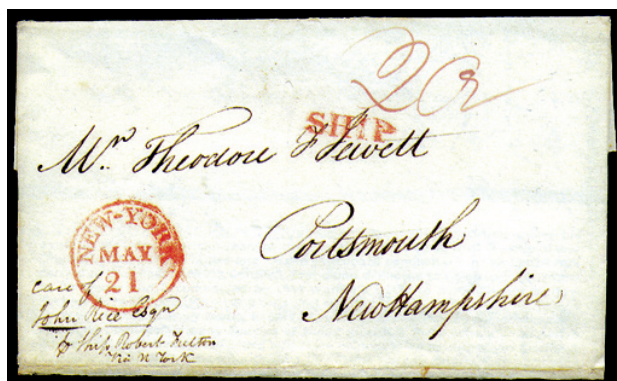 SHIP
Mr. Theodore F Jewett
Portsmouth
New Hampshire
NEW-YORK
MAY
21
care of
John Rice Esqr
Ship Robert Fulton
Via N York